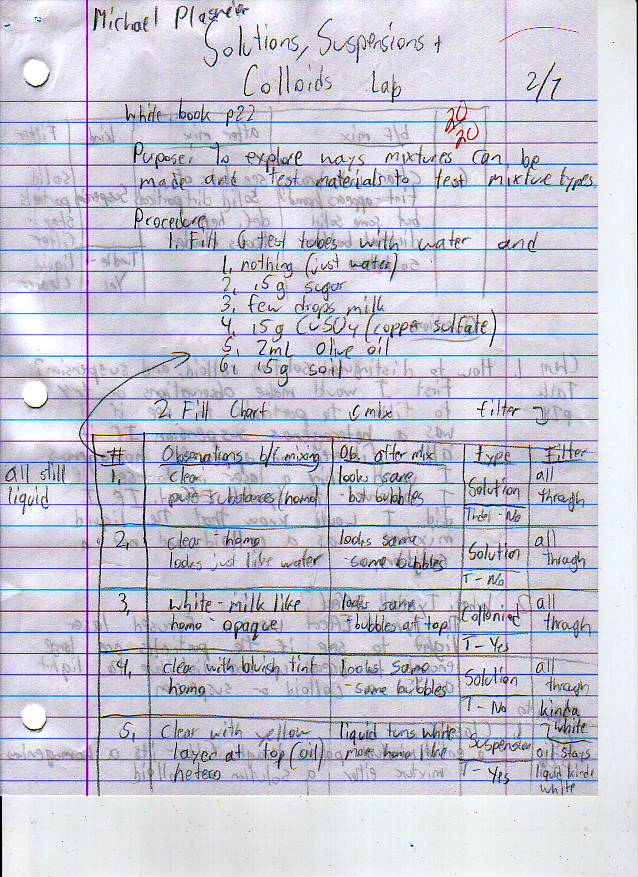 Michael Plasmeier
Solutions, Suspensions +
Colloids Lab
2/7
White book p22
20/20
Pupose: To explore ways mixtures can be
made and test materials to test mixture types.
Procedure
1. Fill 6 test tubes with water and
1. nothing (just water)
2. .5g sugar
3. few drops milk
4. .5g CuSO4 (copper sulfate)
5. 2mL olive oil
6. .5g soil
2. Fill Chart
mix
filter
# Observations b/f mixing Ob. after mix Type Filter
all still
liquid
1. clear looks same Solution all
pure substances/homo -but bubbles through
Tindel - No
2. clear - homo looks same Solution all
looks just like water -some bubbles through
T - No
3. white - milk like looks same Collonied all
homo - opaque -bubbles at top through
T - Yes
4. clear with bluish tint looks same Solution all
homo -some bubbles through
T - No kinda
white
5. Clear with yellow liquid tuns white Suspension
layer at top (oil) more homo like oil stays
hetero T - Yes liquid kinda
white